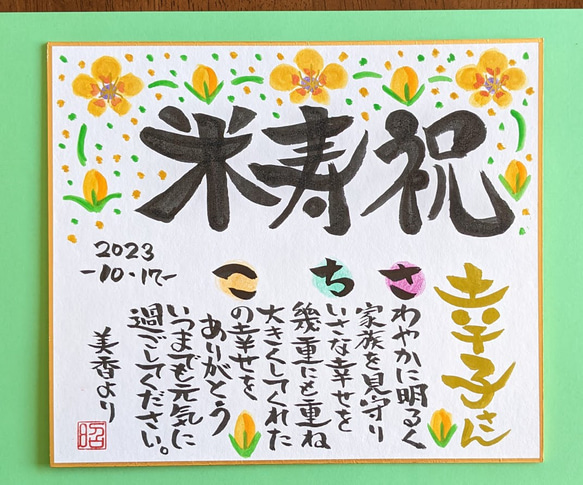 米寿祝
幸子さん
さわやかに明るく
家族を見守り
ちいさな幸せを
幾重にも重ね
大きくしてくれた
この幸せを
ありがとう
いつまでも元気に
過ごしてください。
美香より
2023
-10・17-